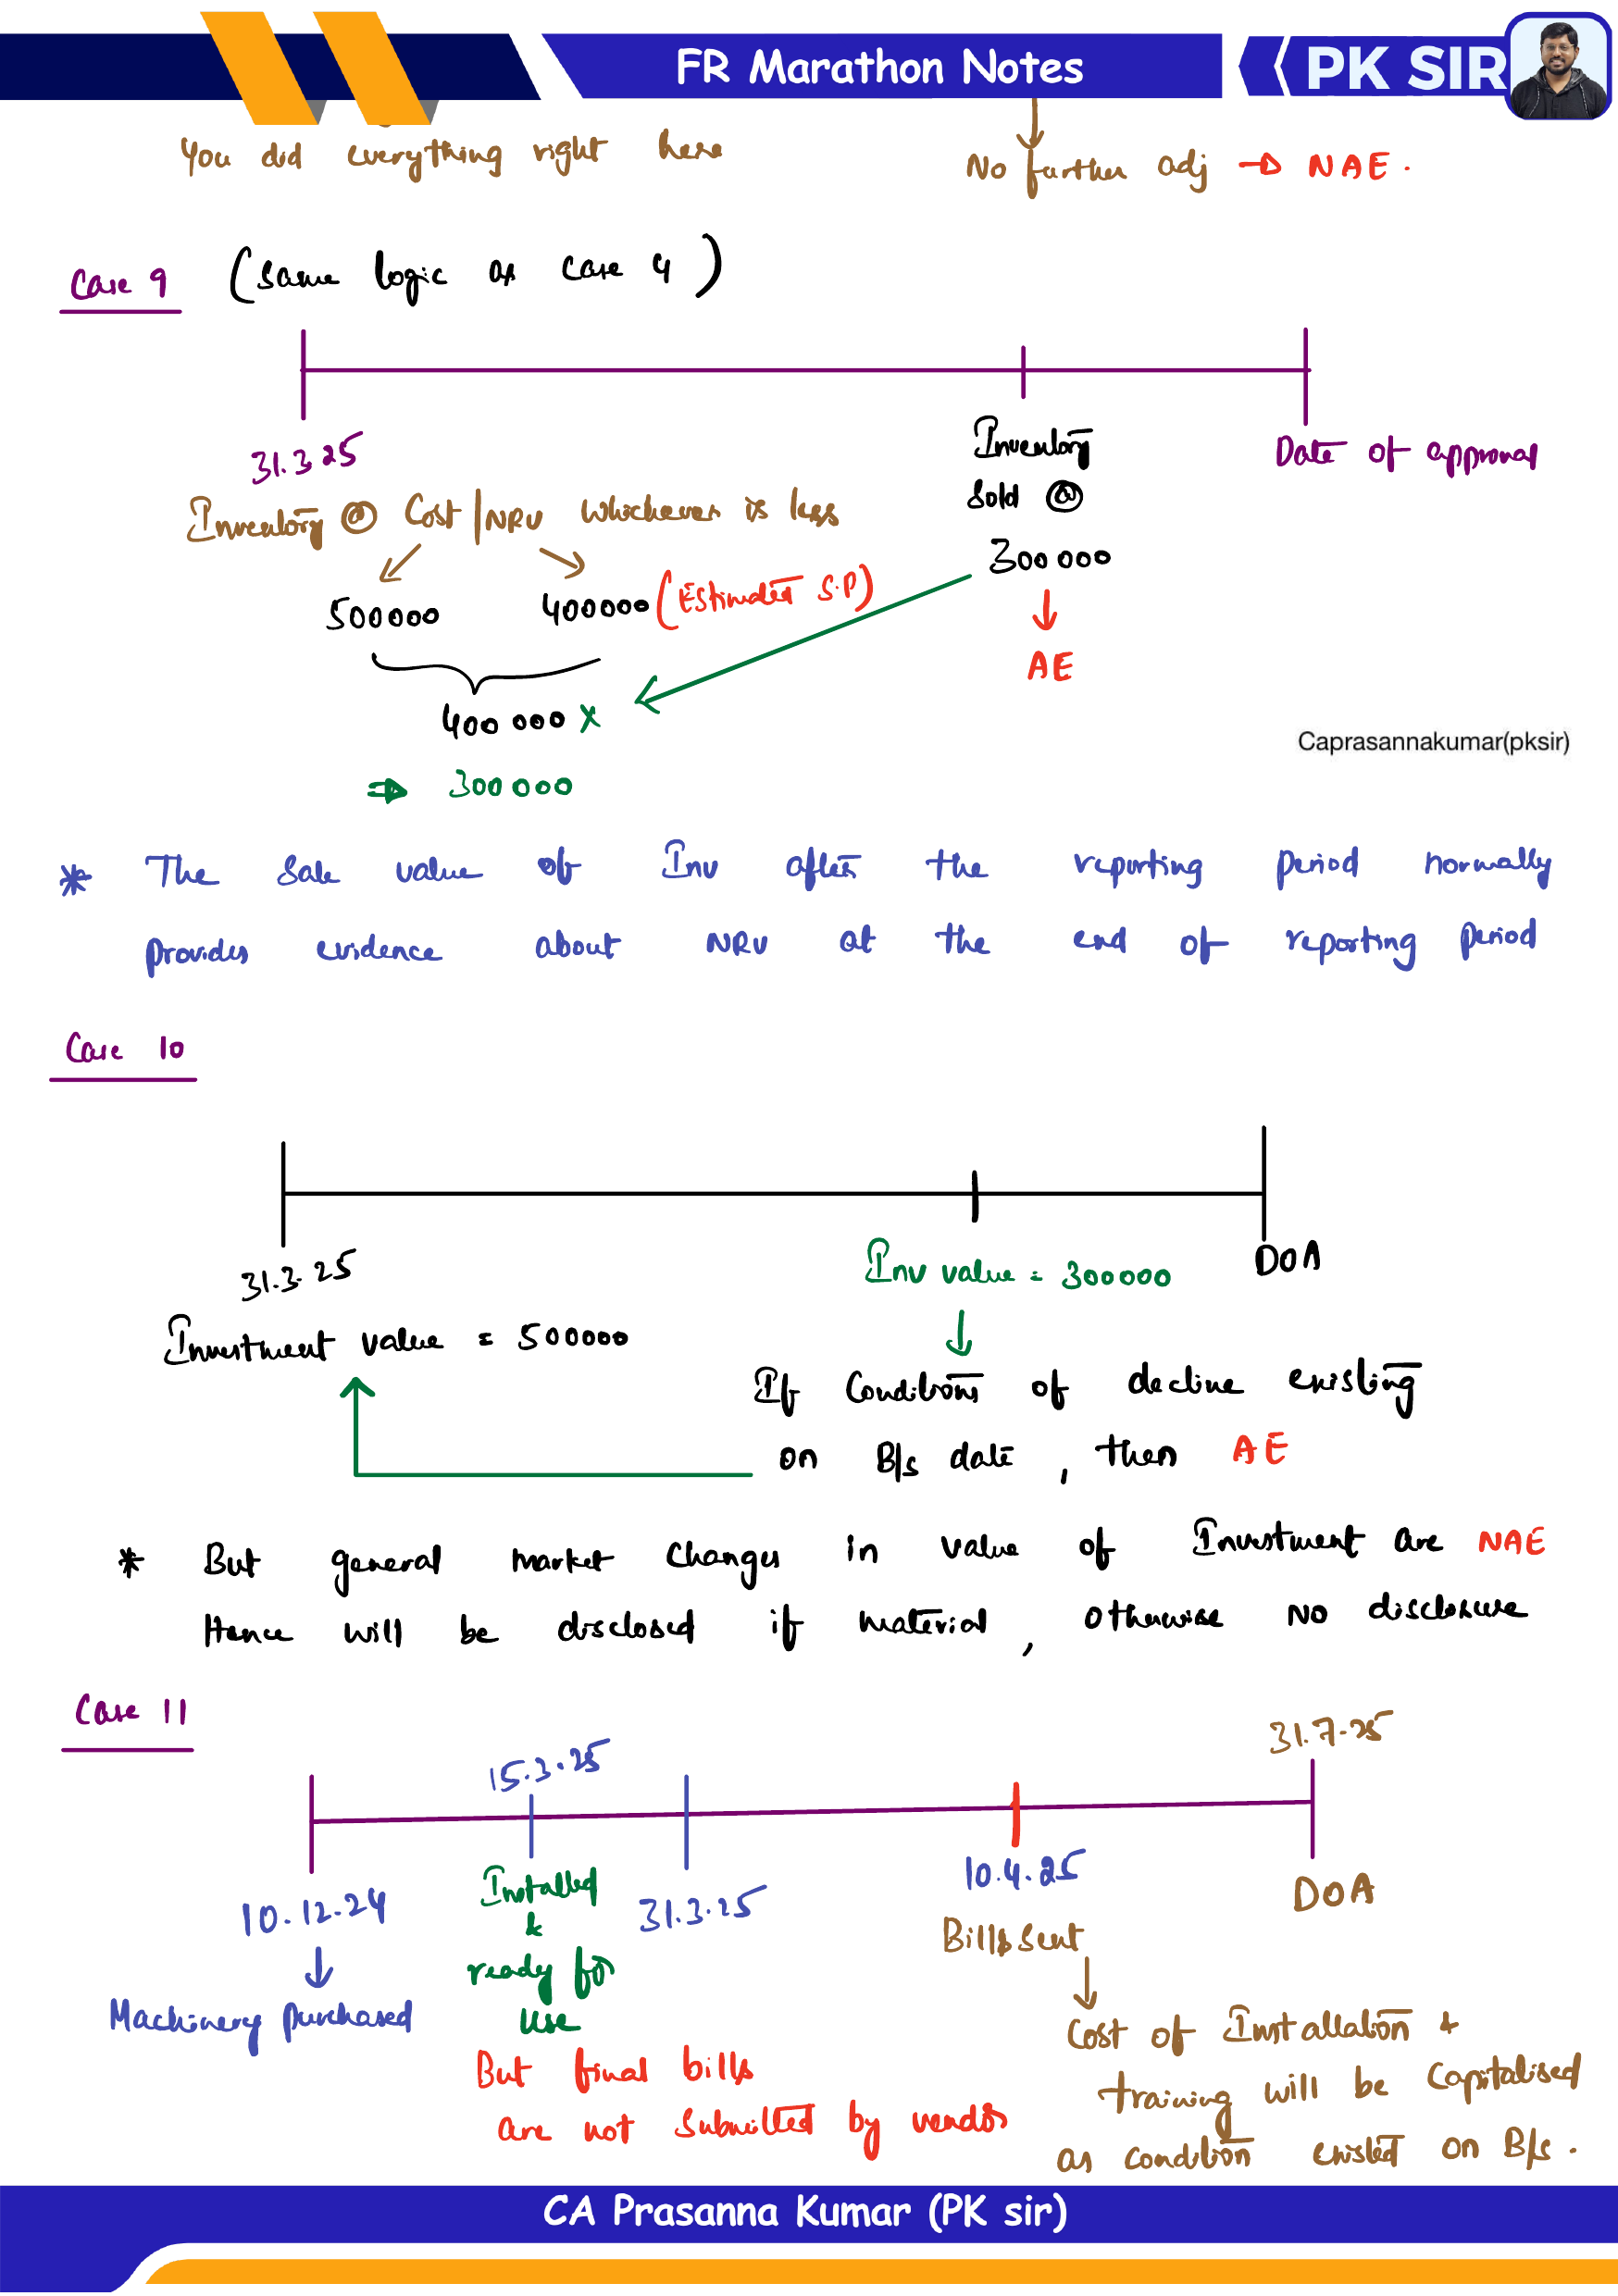 FR Marathon Notes
PK SIR
You did everything right here
No further adj → NAE.
Case 9 (Same logic as Case 4)
31.3.25
Inventory Sold @ 300000
AE
Date of approval
Inventory @ Cost/NRV whichever is less
500000 400000 (Estimated S.P)
400 000 x
⇒ 300000
Caprasannakumar(pksir)
* The Sale value of Inv after the reporting period normally
provides evidence about NRV at the end of reporting period
Case 10
31.3.25
Inv value = 300000
DOA
Investment value = 500000
If Conditions of decline existing
on B/s date, then AE
* But general market changes in value of Investment are NAE
Hence will be disclosed if material, otherwise NO disclosure
Case 11
15.3.25
31.7.25
10.12.24
Machinery purchased
Installed
&
ready for
use
But final bills
are not submitted by vendor
31.3.25
10.4.25
Bills sent
DOA
Cost of Installation +
training will be Capitalised
as condition existed on B/s.
CA Prasanna Kumar (PK sir)